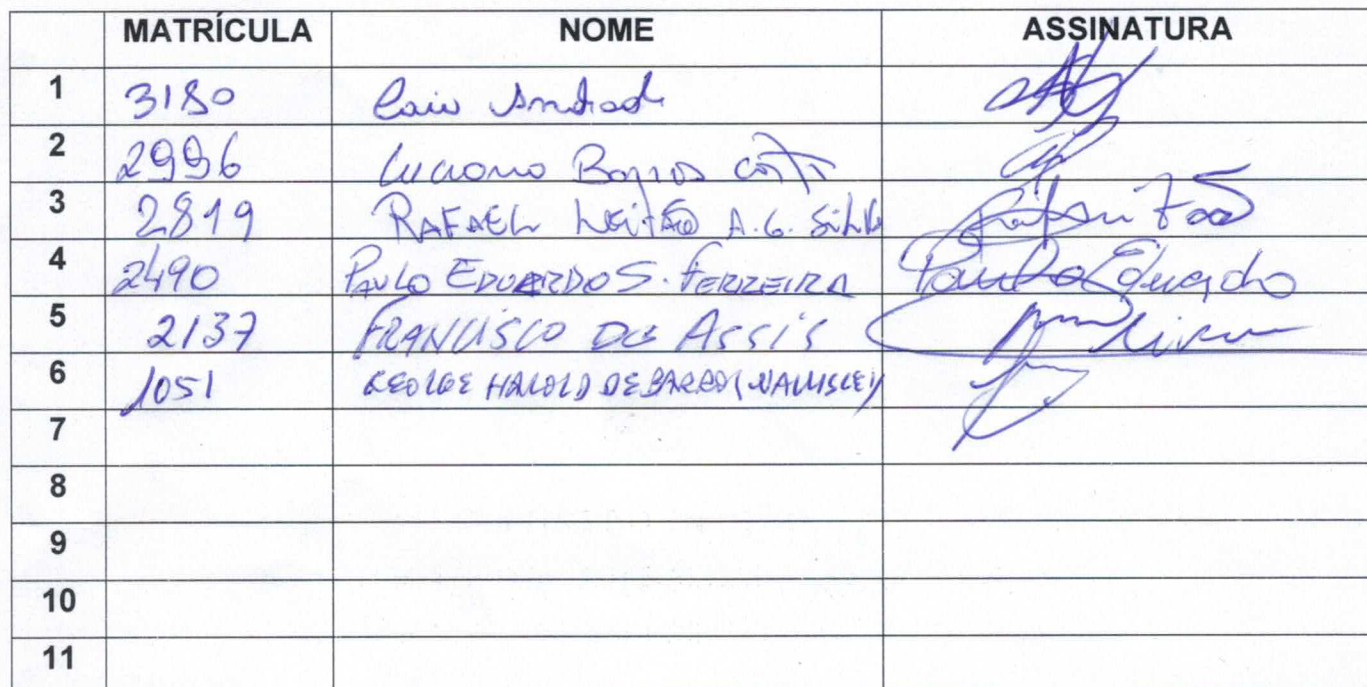 MATRÍCULA NOME ASSINATURA
1 3180 Caio Andrade
2 2996 Luciano Barros Costa
3 2819 RAFAEL LEITÃO A.G. SILVA
4 2490 PAULO EDUARDO S. FERREIRA Paulo Eduardo
5 2137 FRANCISCO DE ASSIS
6 1051 GEORGE HAROLD DE BARROS
7
8
9
10
11